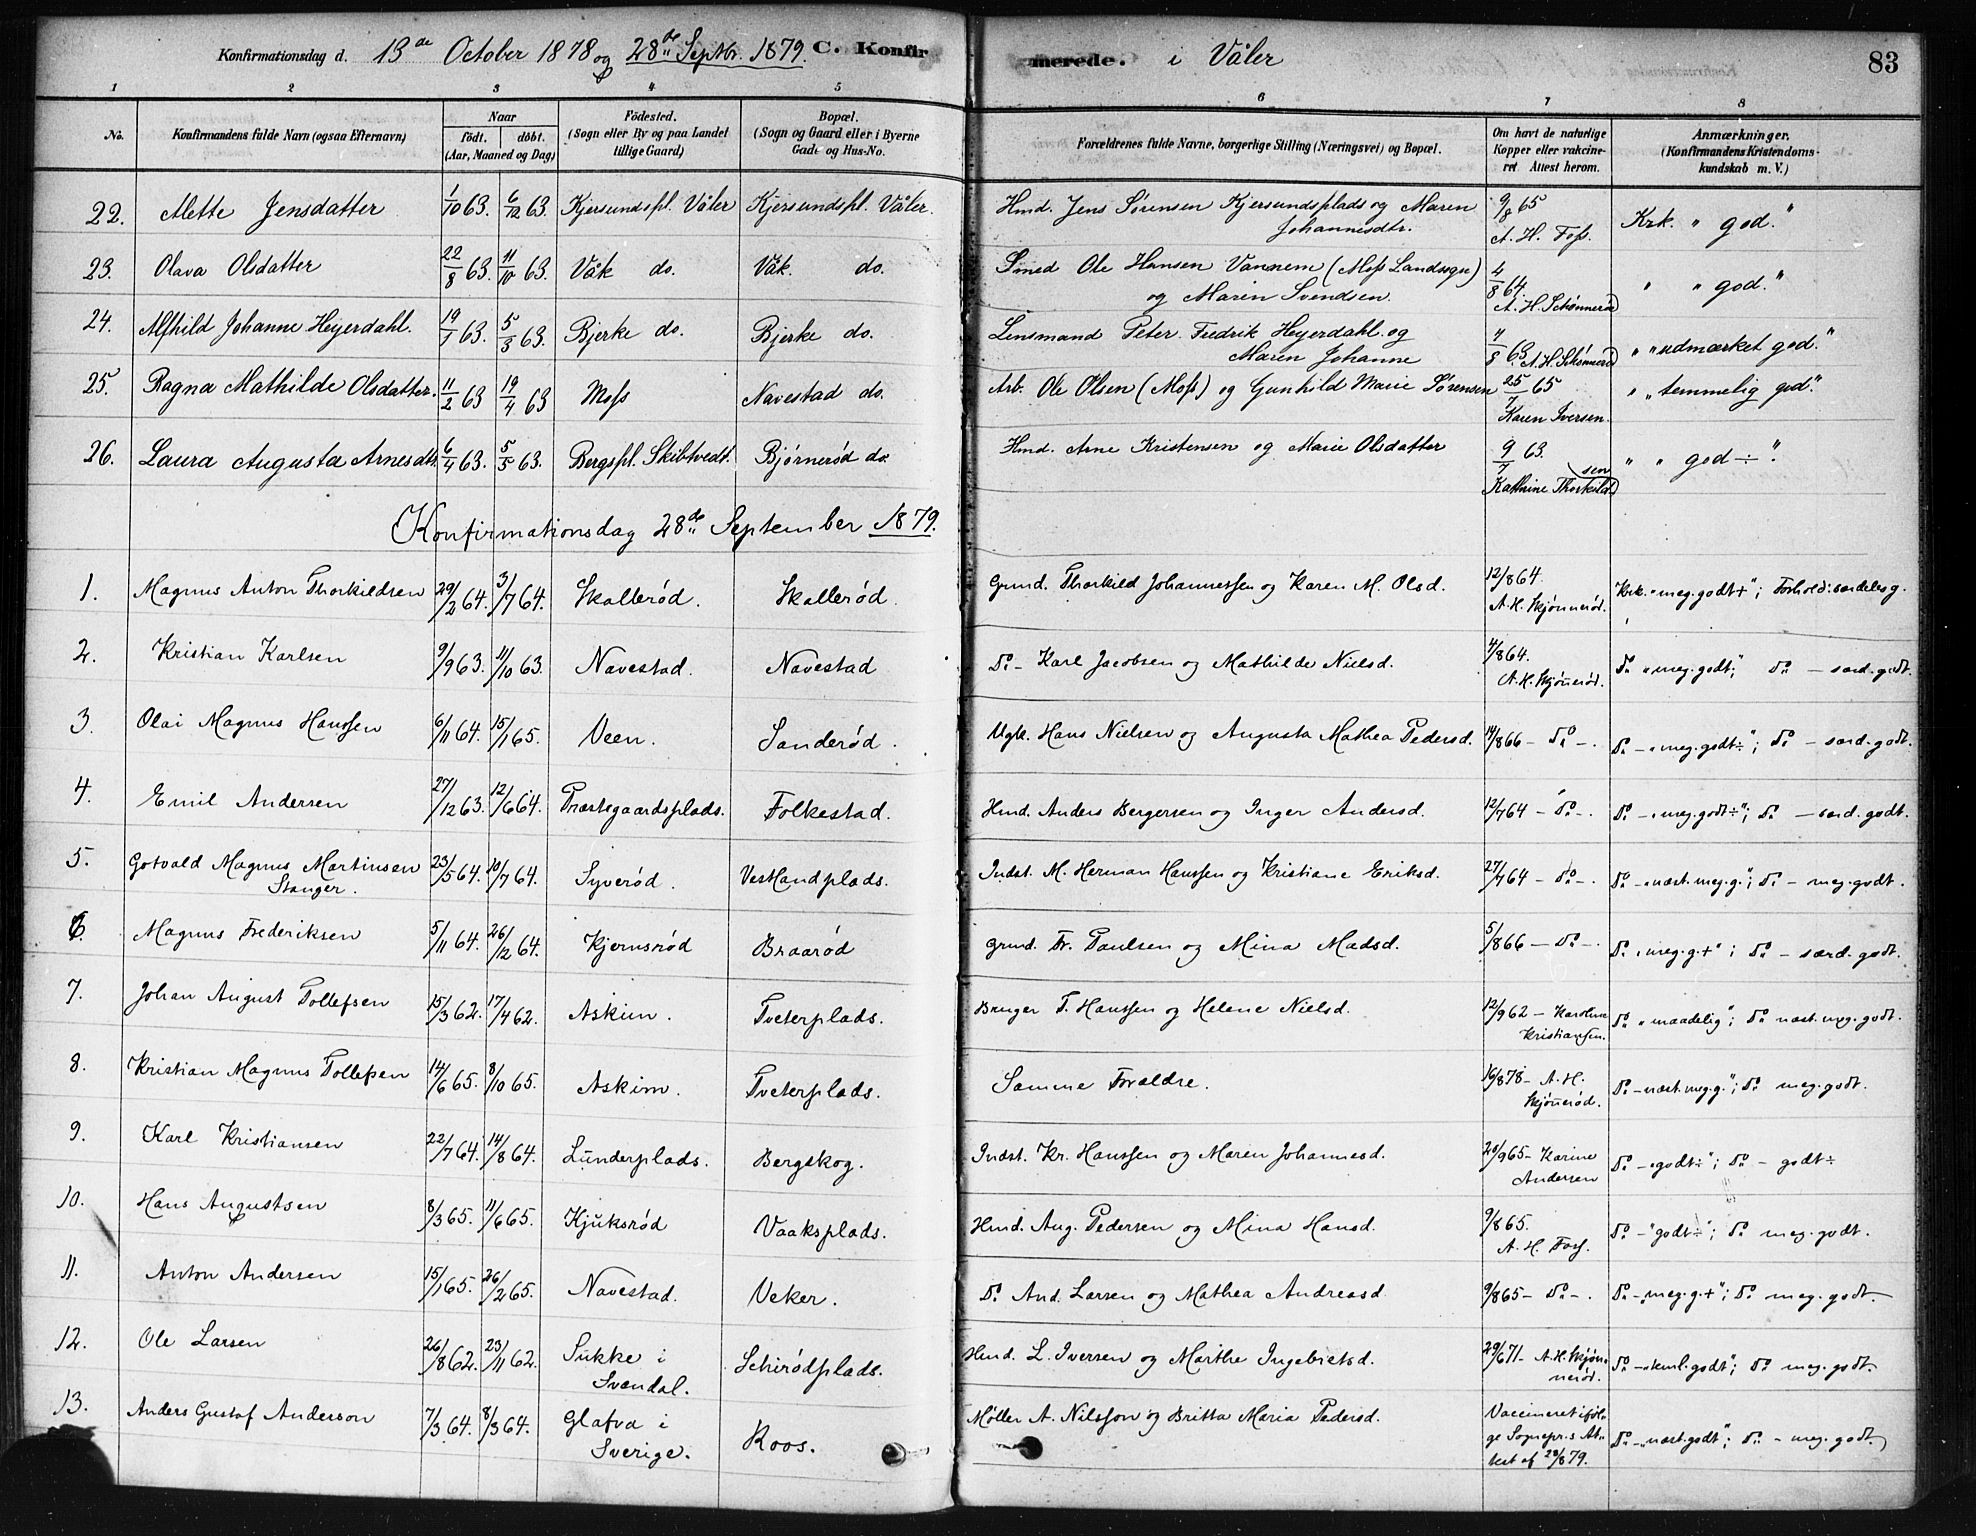 Konfirmationsdag d. 13de October 1878 og 28de Septbr. 1879. C. Konfirmerede. i Våler 83
1 2 3 4 5 6 7 8
No. Konfirmandens fulde Navn (ogsaa Efternavn) Naar födt. döbt. (Aar, Maaned og Dag) Födested. (Sogn eller By og paa Landet tillige Gaard) Bopæl. (Sogn og Gaard eller i Byerne Gade og Hus-No. Forældrenes fulde Navne, borgerlige Stilling (Næringsvei) og Bopæl. Om havt de naturlige Kopper eller vakcineret Attest herom. Anmærkninger. (Konfirmandens Kristendomskundskab m. V.)
22. Mette Jensdatter 1/10 63. 6/12 63. Kjersundspl. Våler Kjersundspl. Våler. Hmd. Jens Sörensen Kjersundsplads og Maren Johannesdtr. 9/8 65 A. H. Foss. Krk. " god."
23. Olava Olsdatter 22/8 63. 11/10 63. Våk do. Våk. do. Smed Ole Hansen Vannem (Moss Landsogn) og Maren Svendsen. 4/8 64. A. H. Schønnerød " " god."
24. Alfhild Johanne Heyerdahl. 19/1 63. 5/3 63. Bjerke do. Bjerke do. Lensmand Peter Fredrik Heyerdahl og Maren Johanne 4/8 63. A. H. Schønnerød " "udmærket god."
25. Ragna Mathilde Olsdatter. 11/2 63 19/4 63 Moss Navestad do. Arb. Ole Olsen (Moss) og Gunhild Marie Sørensen 25/7 65 Karen Iversen. " "temmelig god."
26. Laura Augusta Arnesdtr. 6/4 63. 5/5 63. Bergspl. Skibtvedt. Bjørnerød do. Hmd. Arne Kristensen og Marie Olsdatter 9/7 63. Kathrine Thorkildsen " " god ÷ ".
Konfirmationsdag 28de September 1879.
1. Magnus Anton Thorkildsen 29/2 64. 3/7 64. Skallerød. Skallerød. Grmd. Thorkild Johannessen og Karen M. Olsd. 12/8 64. A. H. Skjønnerød. Krk. "meg. godt+"; Forhold: særdeles g.
2. Kristian Karlsen 9/9 63. 11/10 63. Navestad. Navestad Do - Karl Jacobsen og Mathilde Nielsd. 4/8 64. A. H. Skjønnerød. Do "meg. godt;" Do - særd. godt.
3. Olai Magnus Hanssen 6/11 64. 15/1 65. Veen. Sanderød. Ugk. Hans Nielsen og Augusta Mathea Pedersd. 14/8 66 - Do -. Do - "meg. godt÷"; Do - særd. godt.
4. Emil Andersen 27/12 63. 12/6 64. Præstegaardsplads. Folkestad. Hmd. Anders Bergersen og Inger Andersd. 12/7 64 - Do -. Do - "meg. godt÷"; Do - særd. godt.
5. Gotvald Magnus Martinsen Stanger. 23/5 64. 10/7 64. Syverød. Vestlandplads. Indst. M. Herman Hanssen og Kristiane Eriksd. 27/7 64 - Do -. Do - "næst. meg. g."; Do - meg. godt.
6. Magnus Frederiksen 5/11 64. 26/12 64. Kjernsrød Braarød Grmd. Fr. Paulsen og Mina Madsd. 5/8 66 - Do -. Do "meg. g.+"; Do - særd. godt.
7. Johan August Tollefsen 15/3 62. 17/4 62. Askim. Tveterplads. Bruger T. Hanssen og Helene Nielsd. 12/9 62 - Karoline Kristiansen. Do "maadelig"; Do næst. meg. godt.
8. Kristian Magnus Tollefsen 14/6 65. 8/10 65. Askim. Tveterplads. Samme Forældre. 16/8 78 - A. H. Skjønnerød. Do - næst. meg. g."; Do meg. godt.
9. Karl Kristiansen 22/7 64. 14/8 64. Lunderplads. Bergskog. Indst. Kr. Hanssen og Maren Johannesd. 20/9 65 - Karine Andersen Do - "godt÷"; Do - godt÷
10. Hans Augustsen 8/3 65. 11/6 65. Kjuksrød Vaaksplads. Hmd. Aug. Pedersen og Mina Hansd. 9/8 65. A. H. Foss. Do - "godt÷"; Do meg. godt.
11. Anton Andersen 15/1 65. 26/2 65. Navestad. Veker. Do And. Larsen og Mathea Andreasd. 9/8 65 - Do -. Do - "meg. g.+"; Do meg. godt.
12. Ole Larsen 26/8 62. 23/11 62. Sukke i Svendal. Schirødplads. Hmd. L. Iversen og Marthe Ingebretsd. 29/6 71 - A. H. Skjønnerød. Do - "teml. godt"; Do meg. godt.
13. Anders Gustaf Anderson 7/3 64. 8/3 64. Glafva i Sverige. Roos. Møller A. Nilsson og Britta Maria Pedersd. Vaccineret ifølge Sognepr.s Attest af 23/8 79. Do - "næst. godt"; Do - meg. godt.